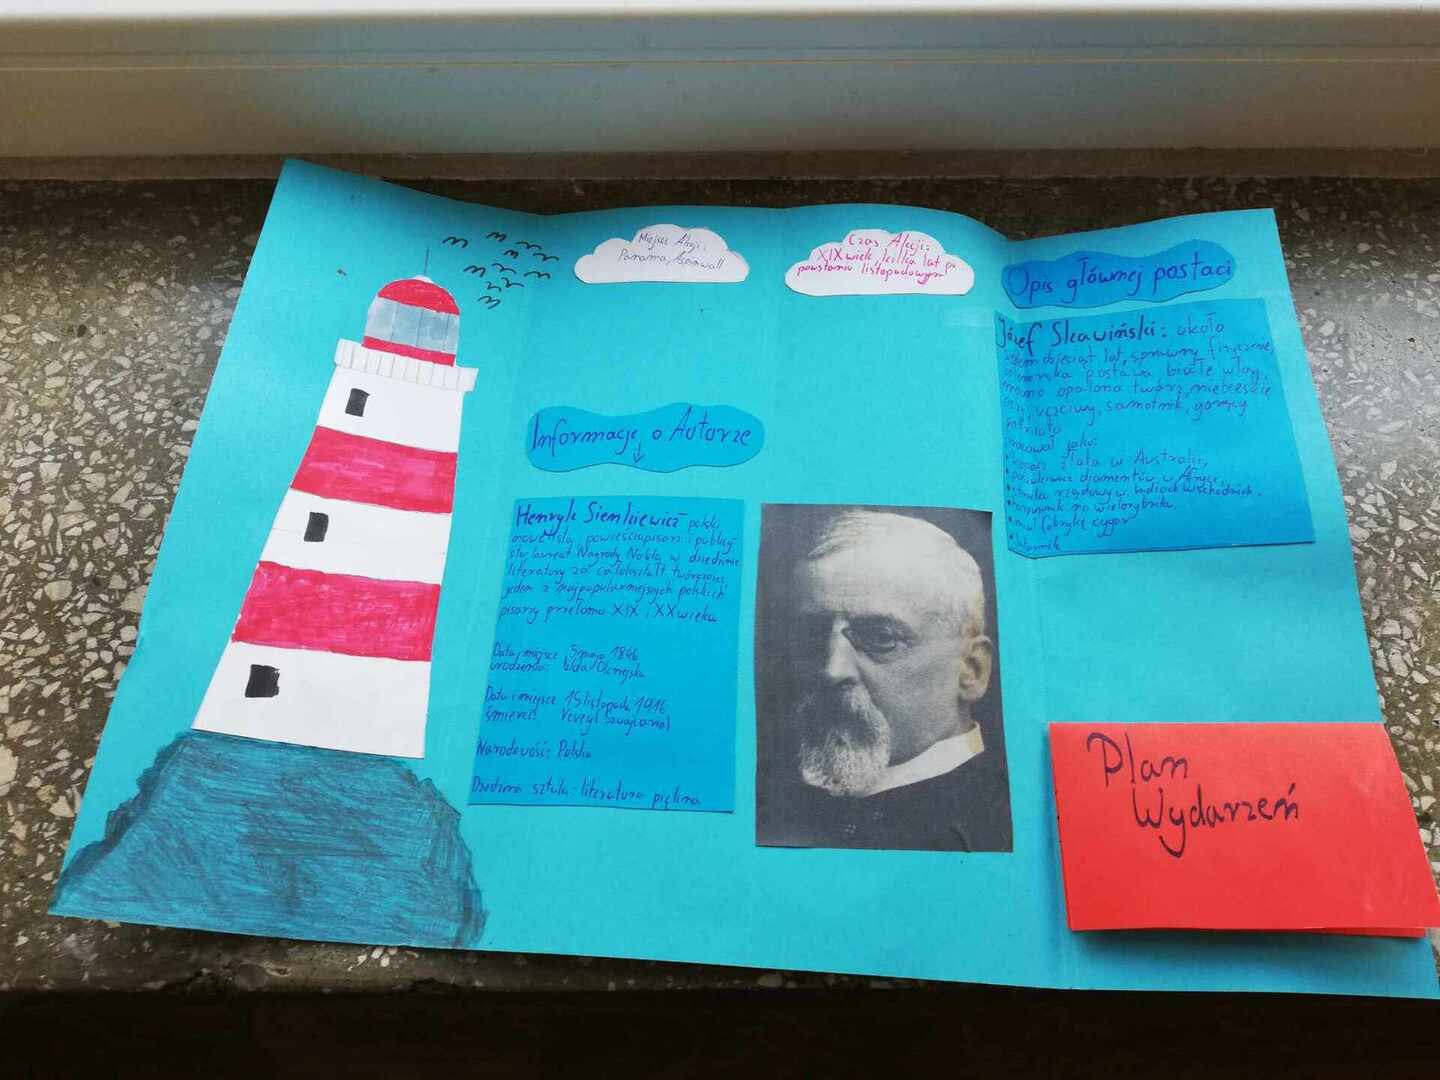 Miejsce Akcji:
Panama, Aspinwall
Czas Akcji:
XIX wiek, kilka lat po
powstaniu listopadowym
Informacje o Autorze
Henryk Sienkiewicz polski
nowelista, powieściopisarz i publicy-
sta, laureat Nagrody Nobla w dziedzinie
literatury za całokształt twórczości,
jeden z najpopularniejszych polskich
pisarzy przełomu XIX i XX wieku
Data i miejsce 5 maja 1846
urodzenia: Wola Okrzejska
Data i miejsce 15 listopada 1916
śmierci: Vevey (Szwajcaria)
Narodowość: Polska
Dziedzina sztuki - literatura piękna
Opis głównej postaci
Józef Skawiński: około
siedem dziesiąt lat, sprawny fizycznie,
żołnierska postawa, białe włosy,
opalona twarz, niebieskie
oczy, uczciwy, samotnik, gorący
patriota
pracował jako:
• kopacz złota w Australii,
• poszukiwacz diamentów w Afryce,
• strzelec rządowy w Indiach Wschodnich.
• harpunnik na wielorybniku.
• miał fabrykę cygar
• latarnik
Plan
Wydarzeń